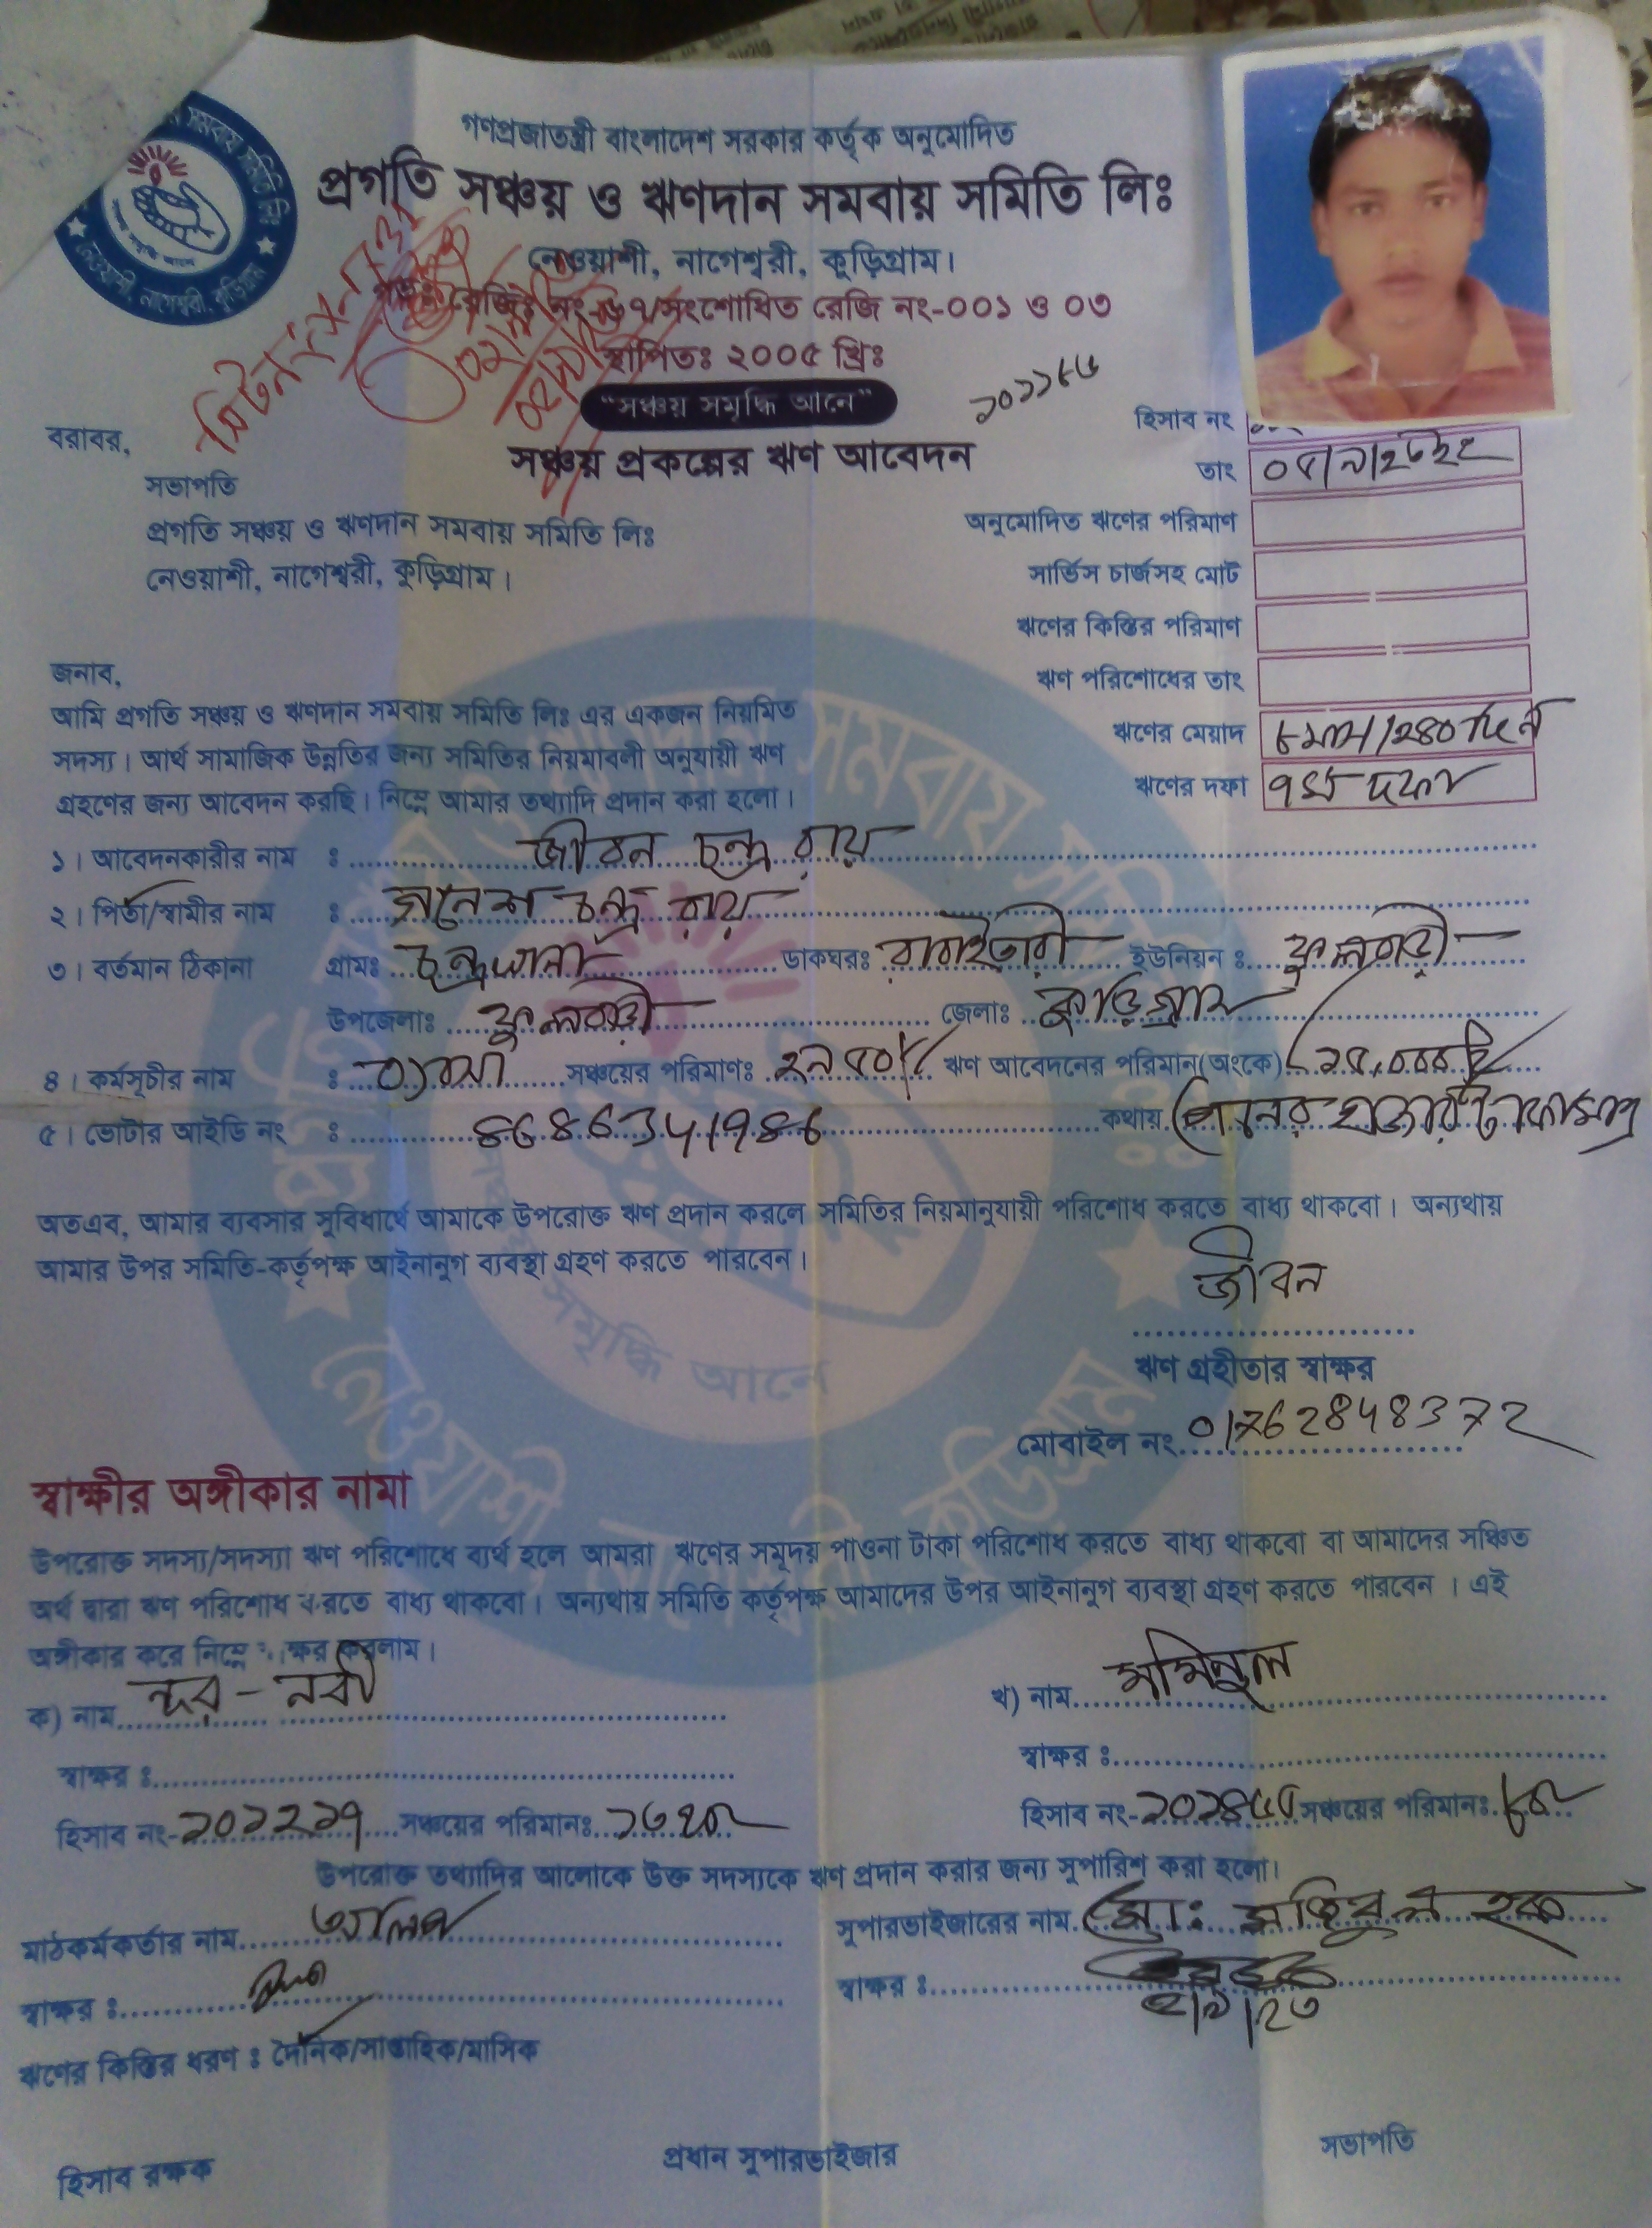 গণপ্রজাতন্ত্রী বাংলাদেশ সরকার কর্তৃক অনুমোদিত
প্রগতি সঞ্চয় ও ঋণদান সমবায় সমিতি লিঃ
নেওয়াশী, নাগেশ্বরী, কুড়িগ্রাম।
রেজিঃ নং-৬৭/সংশোধিত রেজি নং-০০১ ও ০৩
স্থাপিতঃ ২০০৫ খ্রিঃ
"সঞ্চয় সমৃদ্ধি আনে"
সঞ্চয় প্রকল্পের ঋণ আবেদন
হিসাব নং
তাং
অনুমোদিত ঋণের পরিমাণ
সার্ভিস চার্জসহ মোট
ঋণের কিস্তির পরিমাণ
ঋণ পরিশোধের তাং
ঋণের মেয়াদ ৮মাস/২৪০দিন
ঋণের দফা ১ম দফা
বরাবর,
সভাপতি
প্রগতি সঞ্চয় ও ঋণদান সমবায় সমিতি লিঃ
নেওয়াশী, নাগেশ্বরী, কুড়িগ্রাম।
জনাব,
আমি প্রগতি সঞ্চয় ও ঋণদান সমবায় সমিতি লিঃ এর একজন নিয়মিত
সদস্য। আর্থ সামাজিক উন্নতির জন্য সমিতির নিয়মাবলী অনুযায়ী ঋণ
গ্রহণের জন্য আবেদন করছি। নিম্নে আমার তথ্যাদি প্রদান করা হলো।
১। আবেদনকারীর নাম : জীবন চন্দ্র রায়
২। পিতা/স্বামীর নাম : গনেশ চন্দ্র রায়
৩। বর্তমান ঠিকানা গ্রামঃ চন্দ্রখানা ডাকঘরঃ বারাইতারী ইউনিয়ন ঃ ফুলবাড়ী
উপজেলাঃ ফুলবাড়ী জেলাঃ কুড়িগ্রাম
৪। কর্মসূচীর নাম : ব্যবসা সঞ্চয়ের পরিমাণঃ ঋণ আবেদনের পরিমান(অংকে) ১৫,০০০/
৫। ভোটার আইডি নং : কথায় পনের হাজার টাকা মাত্র
অতএব, আমার ব্যবসার সুবিধার্থে আমাকে উপরোক্ত ঋণ প্রদান করলে সমিতির নিয়মানুযায়ী পরিশোধ করতে বাধ্য থাকবো। অন্যথায়
আমার উপর সমিতি-কর্তৃপক্ষ আইনানুগ ব্যবস্থা গ্রহণ করতে পারবেন।
জীবন
ঋণ গ্রহীতার স্বাক্ষর
মোবাইল নং 01762848372
স্বাক্ষীর অঙ্গীকার নামা
উপরোক্ত সদস্য/সদস্যা ঋণ পরিশোধে ব্যর্থ হলে আমরা ঋণের সমূদয় পাওনা টাকা পরিশোধ করতে বাধ্য থাকবো বা আমাদের সঞ্চিত
অর্থ দ্বারা ঋণ পরিশোধ করতে বাধ্য থাকবো। অন্যথায় সমিতি কর্তৃপক্ষ আমাদের উপর আইনানুগ ব্যবস্থা গ্রহণ করতে পারবেন । এই
অঙ্গীকার করে নিম্নে স্বাক্ষর করলাম।
ক) নাম নুর - নবী খ) নাম মমিনুল
স্বাক্ষর ঃ স্বাক্ষর ঃ
হিসাব নং-১০১২২১৭ সঞ্চয়ের পরিমানঃ হিসাব নং- সঞ্চয়ের পরিমানঃ
উপরোক্ত তথ্যাদির আলোকে উক্ত সদস্যকে ঋণ প্রদান করার জন্য সুপারিশ করা হলো।
মাঠকর্মকর্তার নাম সুপারভাইজারের নাম মোঃ হক
স্বাক্ষর ঃ স্বাক্ষর ঃ
ঋণের কিস্তির ধরণ ঃ দৈনিক/সাপ্তাহিক/মাসিক
হিসাব রক্ষক প্রধান সুপারভাইজার সভাপতি